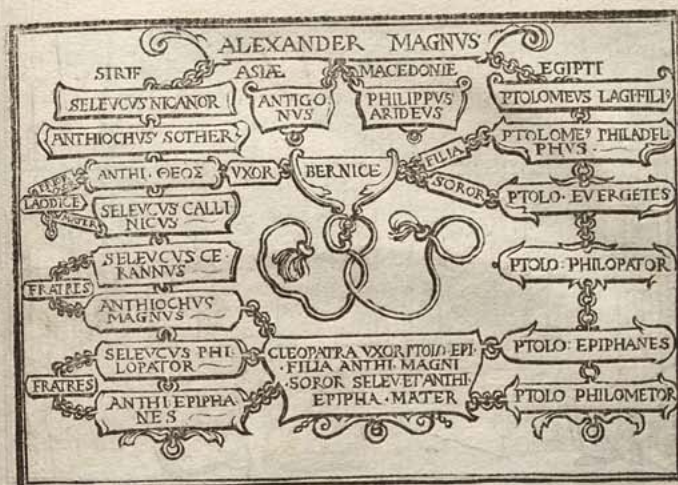 ALEXANDER MAGNVS
SIRIE ASIÆ MACEDONIE EGIPTI
SELEVCVS NICANOR
ANTIGO
NVS
PHILIPPVS
ARIDEVS
PTOLOMEVS LAGI·FILI⁹
ANTHIOCHVS SOTHER
PTOLOME⁹ PHILADEL
PHVS
ANTHI · ΘΕΟΣ
VXOR
BERNICE
FILIA
SOROR
LAODICE
SELEVCVS CALLI
NICVS
PTOLO · EVERGETES
SELEVCVS CE
RANNVS
PTOLO : PHILOPATOR
FRATRES
ANTHIOCHVS
MAGNVS
SELEVCVS PHI
LOPATOR
CLEOPATRA VXOR PTOLO · EPI
· FILIA ANTHI · MAGNI
· SOROR SELEV ET ANTHI
EPIPHA · MATER
PTOLO : EPIPHANES
FRATRES
ANTHI EPIPHA
NES
PTOLO PHILOMETOR